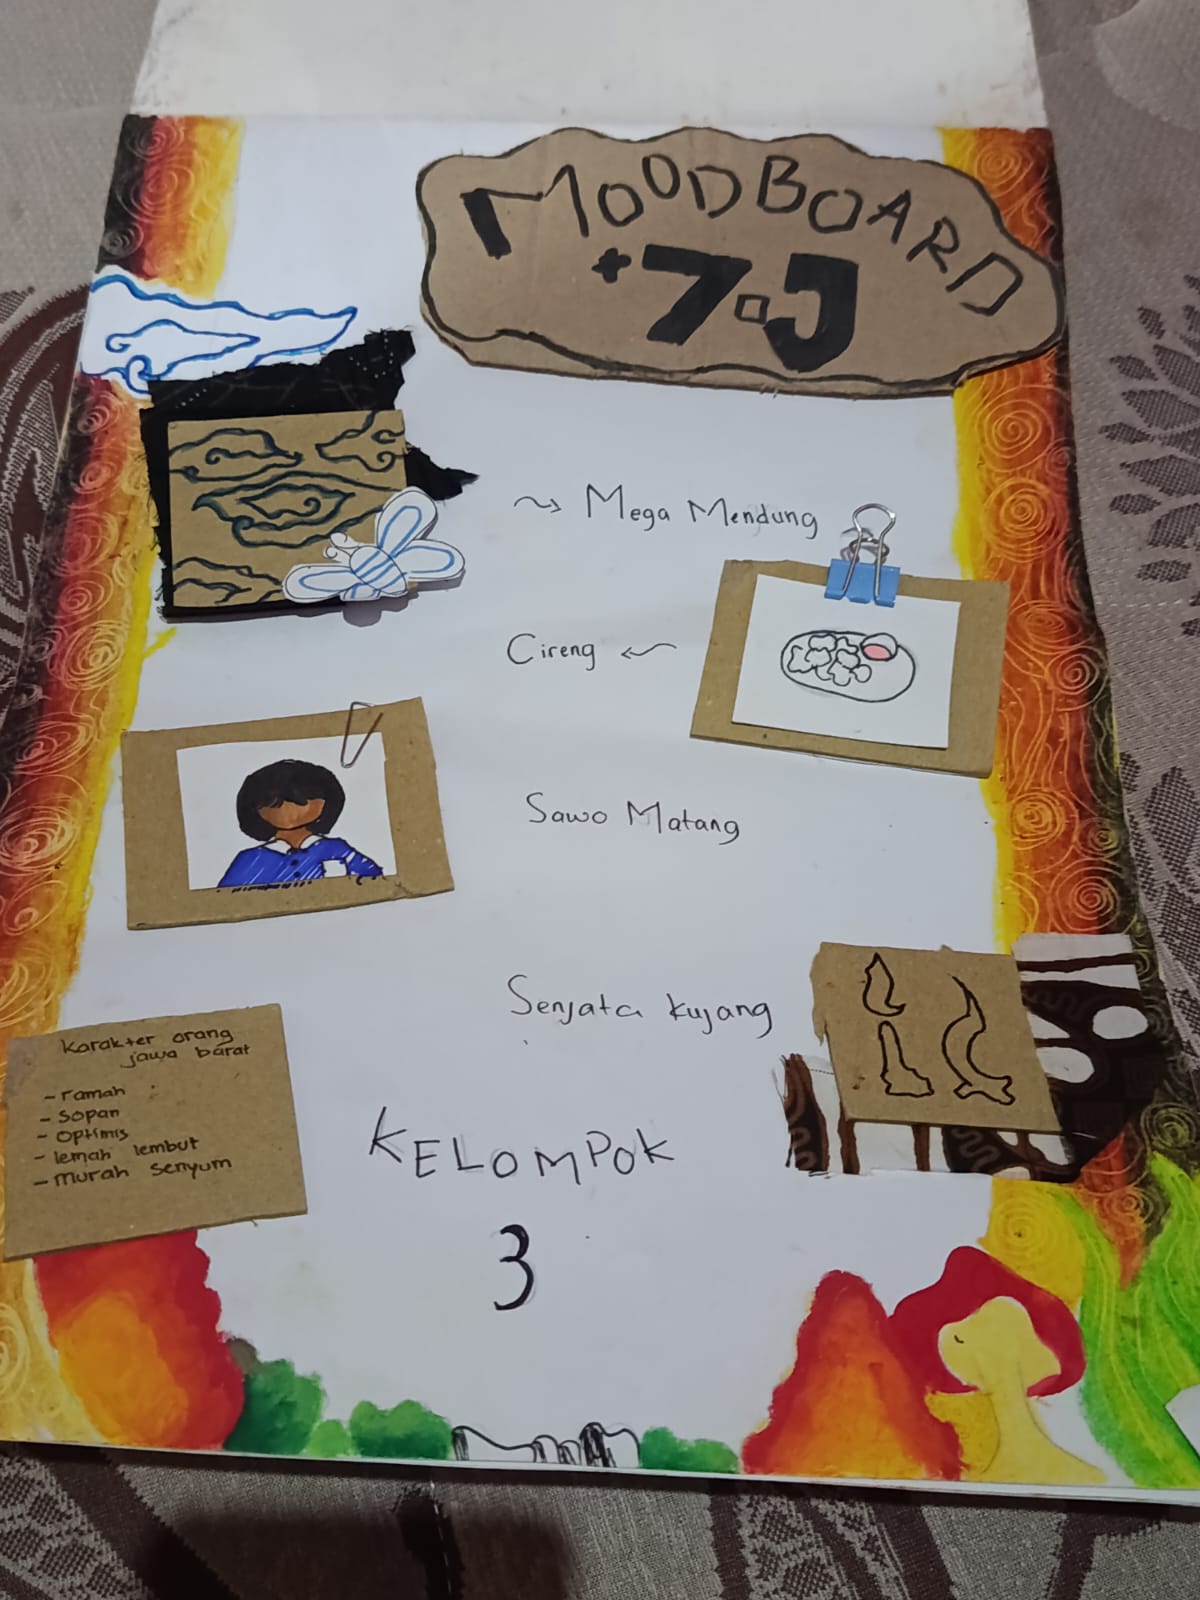 MOODBOARD
7.J
Mega Mendung
Cireng
Sawo Matang
Senjata kujang
Karakter orang
jawa barat
- ramah
- sopan
- optimis
- lemah lembut
- murah senyum
KELOMPOK
3